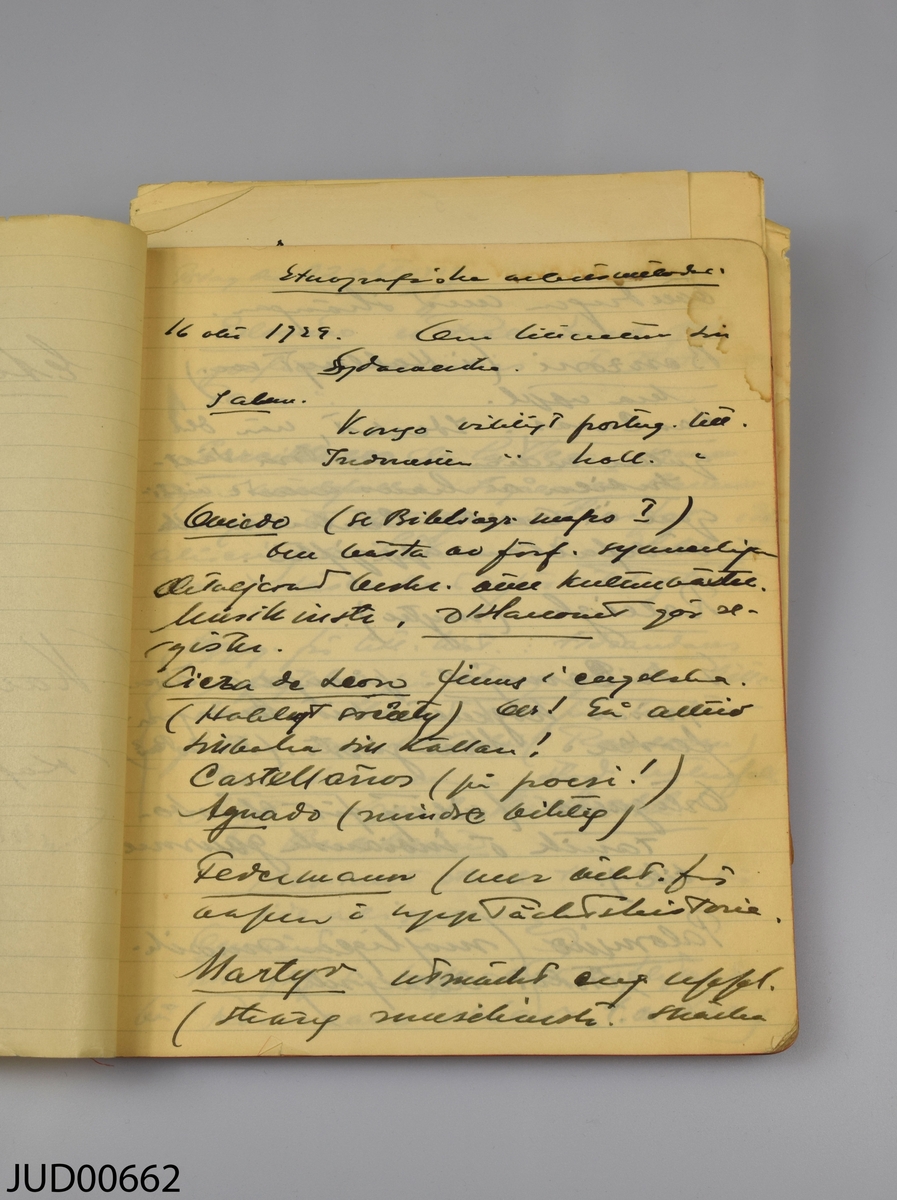 Etnografiska arbetsmetoder.
16 okt 1929. Om litteratur till
Sydamerika.
Kongo viktigt portug. litt.
Indonesien " holl. "
Oviedo (se Bibliogr. )
Den bästa av förf. synnerligen
detaljerad beskr. även kulturväxter.
Musikinstr. D'Harcourt gör re-
gister.
Cieza de Leon finns i engelska.
(Hakluyt society) Obs! Gå alltid
tillbaka till källan!
Castellanos (på poesi!)
Aguado (mindre viktig)
Federmann (mer vikt. för
vapen i upptäcktshistorie.
Martyr utmärkt eng uppl.
( musikinstr.
JUD00662